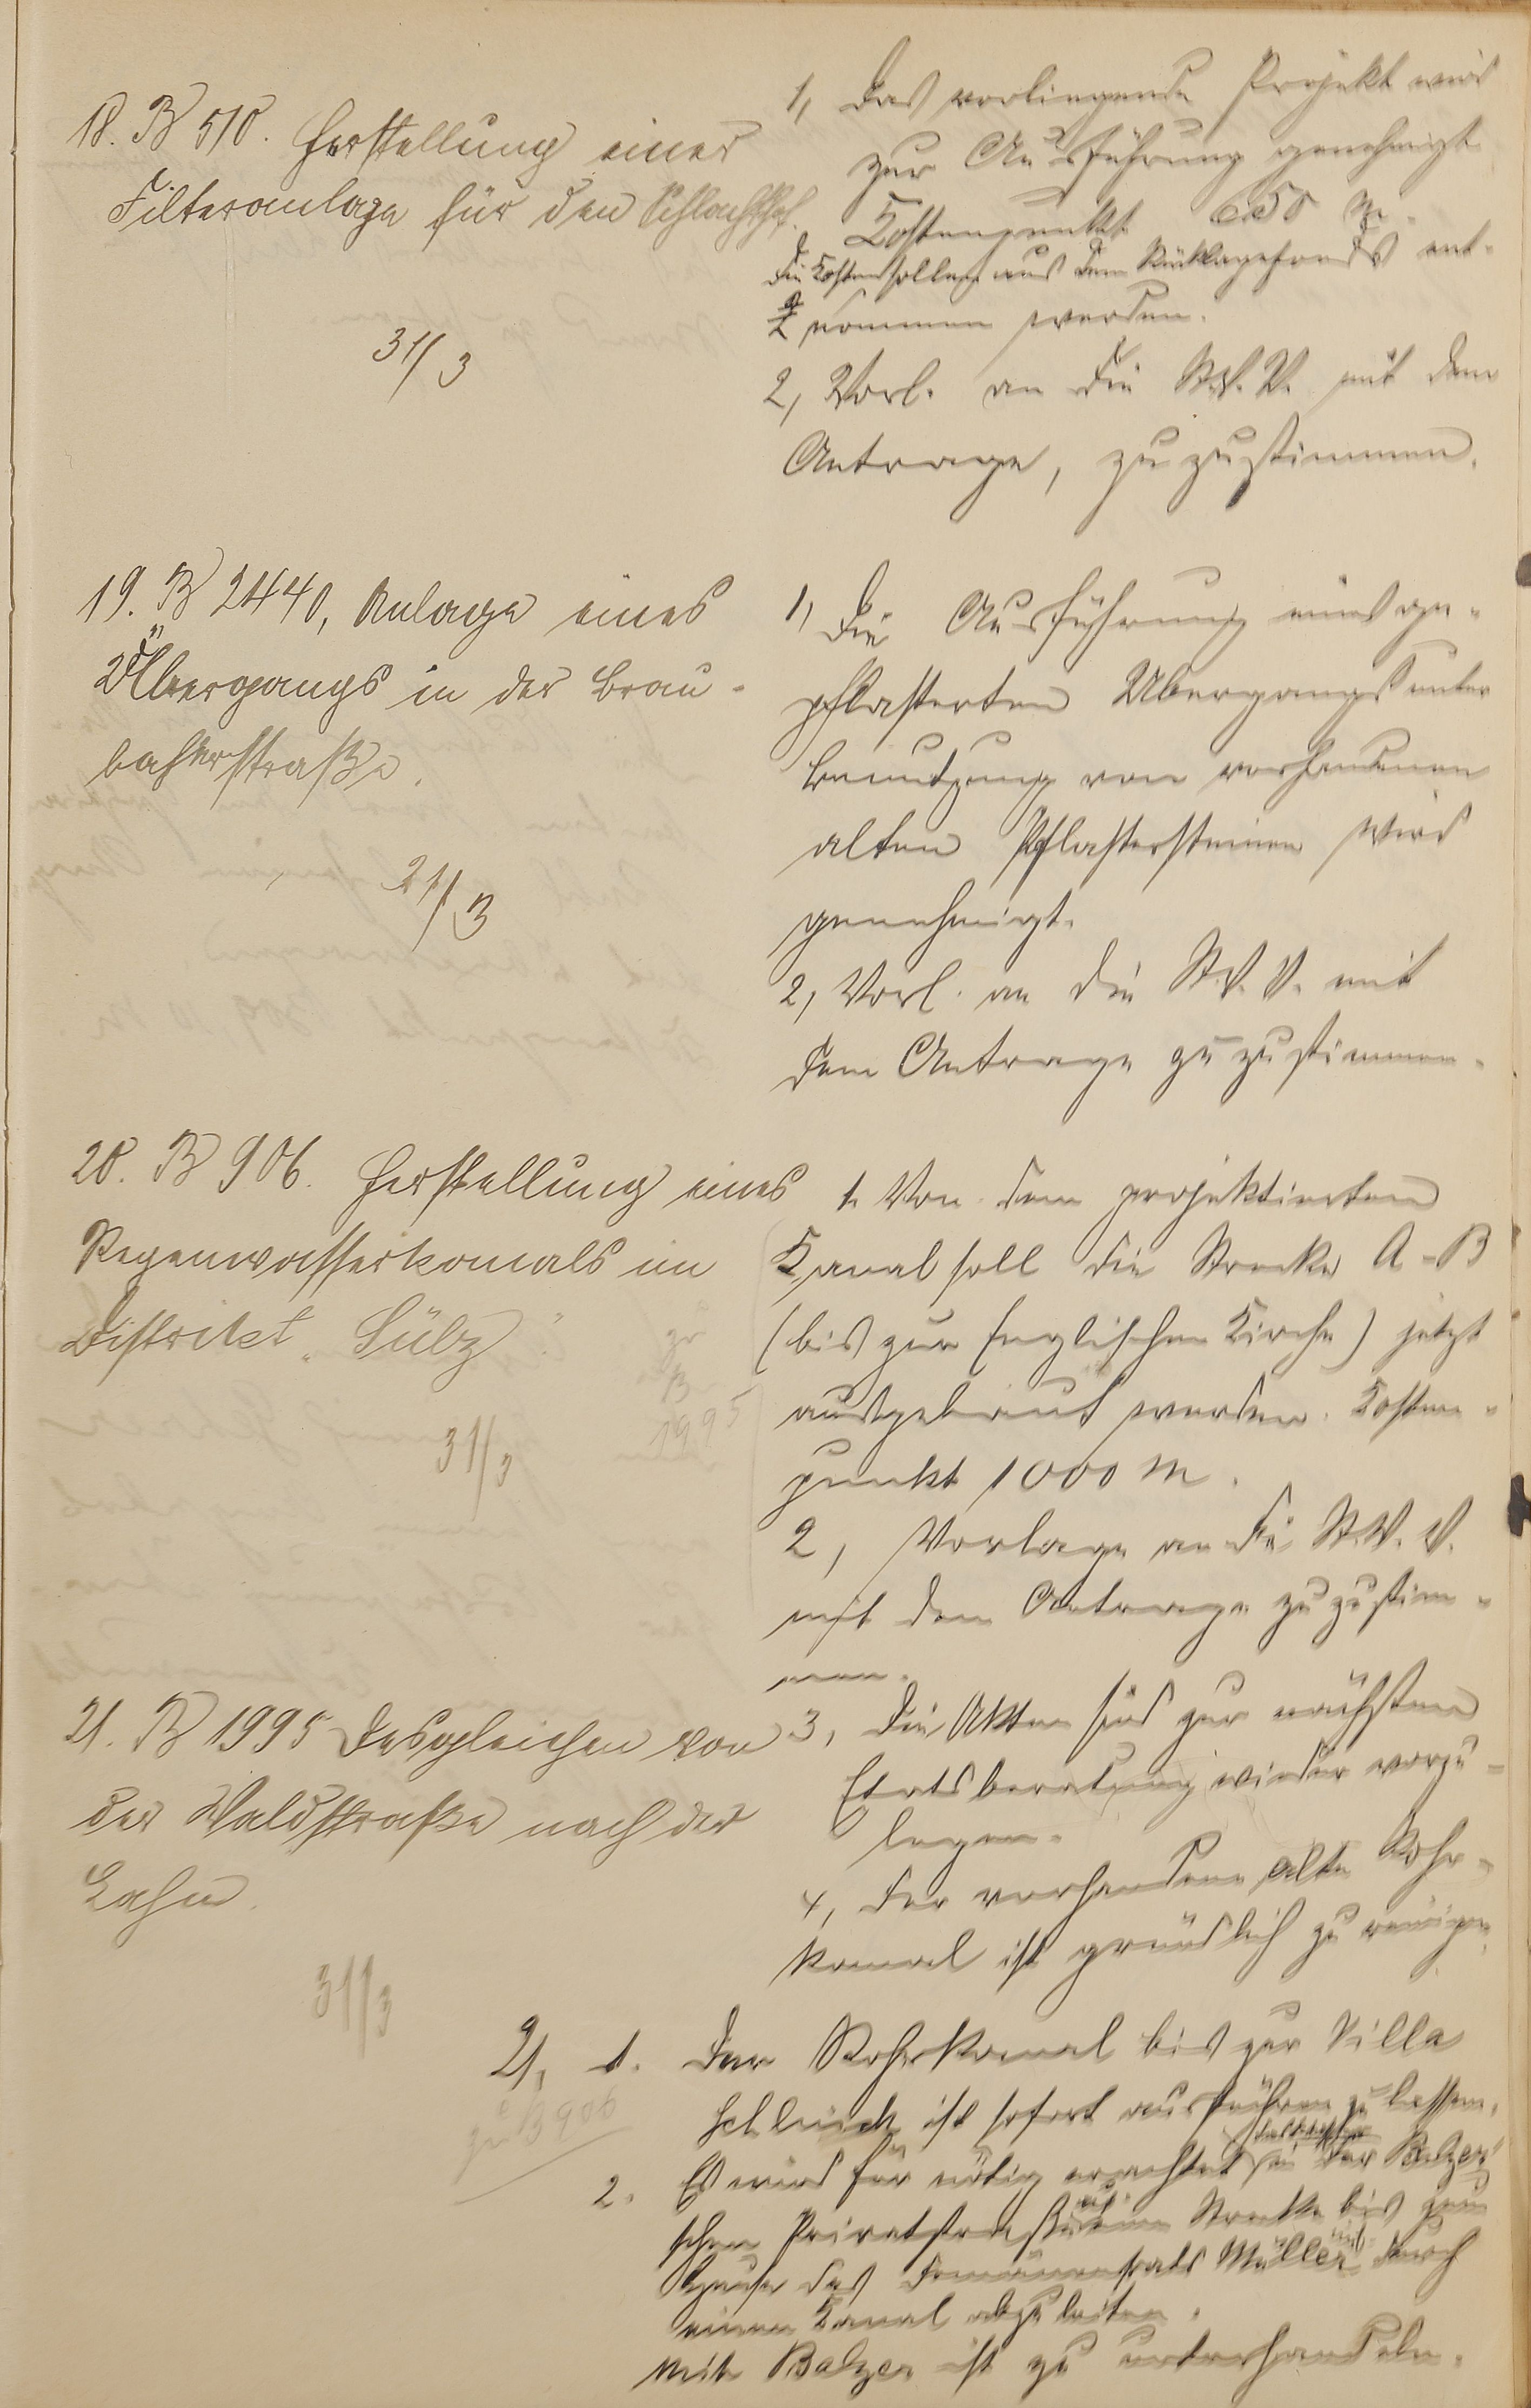 18. B 510. Herstellung einer
Filteranlage für den Schlachthof.
31/3
1, Das vorliegende Projekt wird
zur Ausführung genehmigt
Kostenpunkt 650 M.
Die Kosten sollen aus dem Rücklagefonds ent-
nommen werden.
2, Vorl. an die St.V.V. mit dem
Antrage, zuzustimmen.
19. B 2440, Anlage eines
Übergangs in der Brau-
bacherstraße.
21/3
1, Die Ausführung eines ge-
pflasterten Übergangs unter
Benutzung von vorhandenen
alten Pflastersteinen wird
genehmigt.
2, Vorl. an die St.V.V. mit
dem Antrage zuzustimmen.
20. B 906. Herstellung eines
Regenwasserkanals im
Distrikt „Sülz"
31/3
zu
B
1995
1. Von dem projektierten
Kanal soll die Strecke A-B
(bis zur Englischen Kirche) jetzt
ausgebaut werden. Kosten-
punkt 1000 M.
2, Vorlage an die St.V.V.
mit dem Antrage zuzustim-
men.
3, Die Akten sind zur nächsten
Etatsberatung wieder vorzu-
legen.
4, Der vorhandene alte Rohr-
kanal ist gründlich zu reinigen.
21. B 1995 Desgleichen von
der Waldstraße nach der
Lahn.
31/3
zu B 906
21, 1. Der Rohrkanal bis zur Villa
ist sofort ausführen zu lassen.
2. Es wird für nötig erachtet in der Balzer'
schen Privatstraße Strecke bis zum
Hause des Domänenrats Müller durch
einen Kanal abzuleiten.
Mit Balzer ist zu unterhandeln.